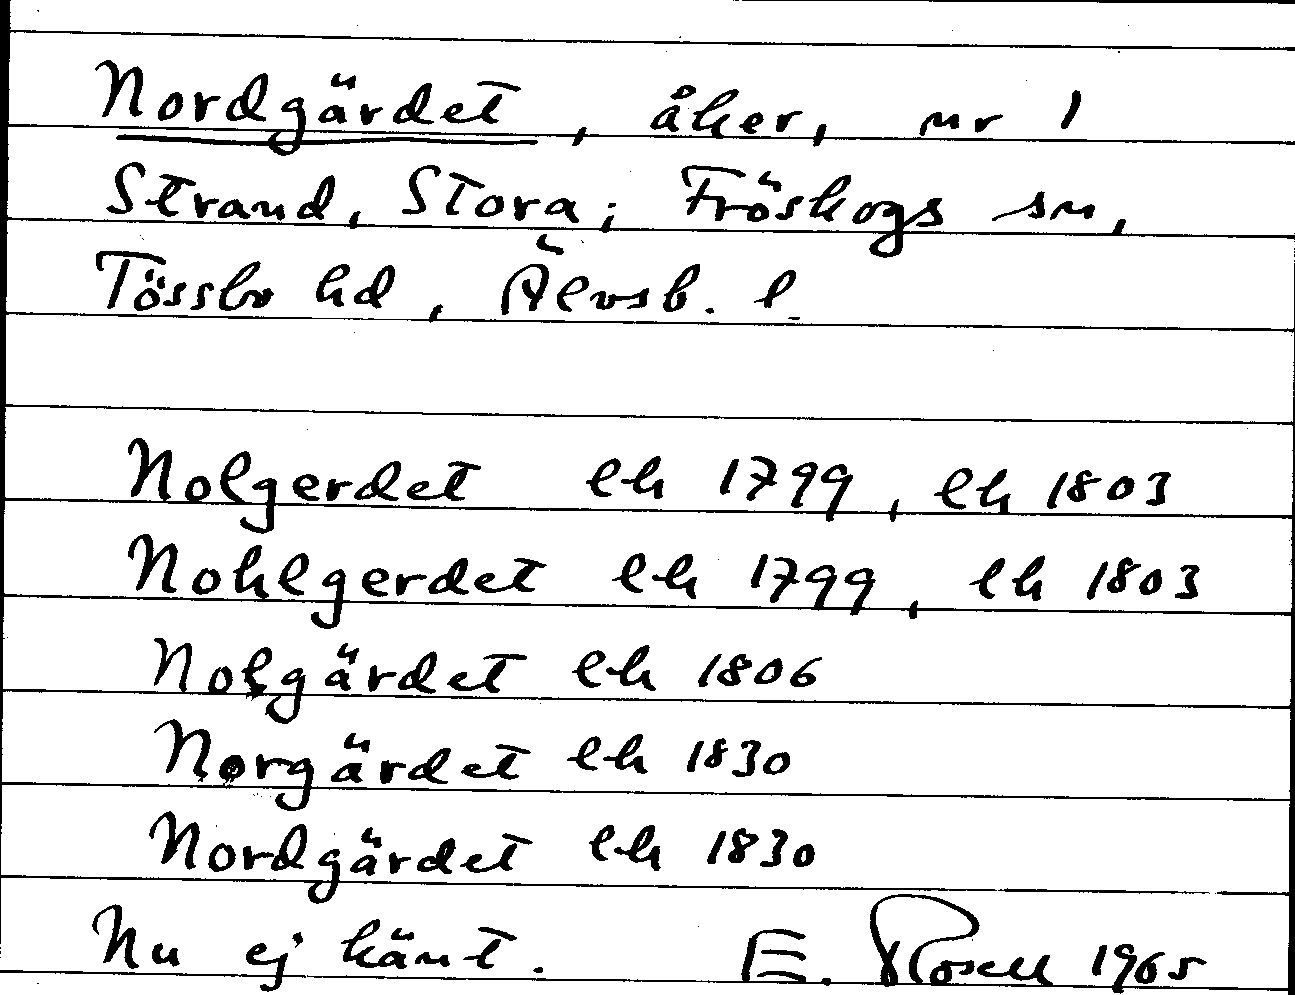 Nordgärdet, åker, nr 1
Strand, Stora; Fröskogs sn,
Tössbo hd, Älvsb. l.
Nolgerdet lh 1799, lh 1803
Nohlgerdet lh 1799, lh 1803
Nolgärdet lh 1806
Norgärdet lh 1830
Nordgärdet lh 1830
Nu ej känt. E. Rosell 1965